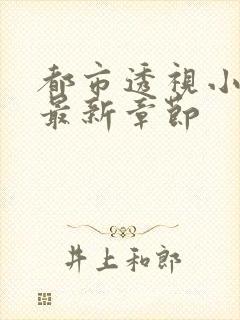 都市透視小
最新章節
井上和郎